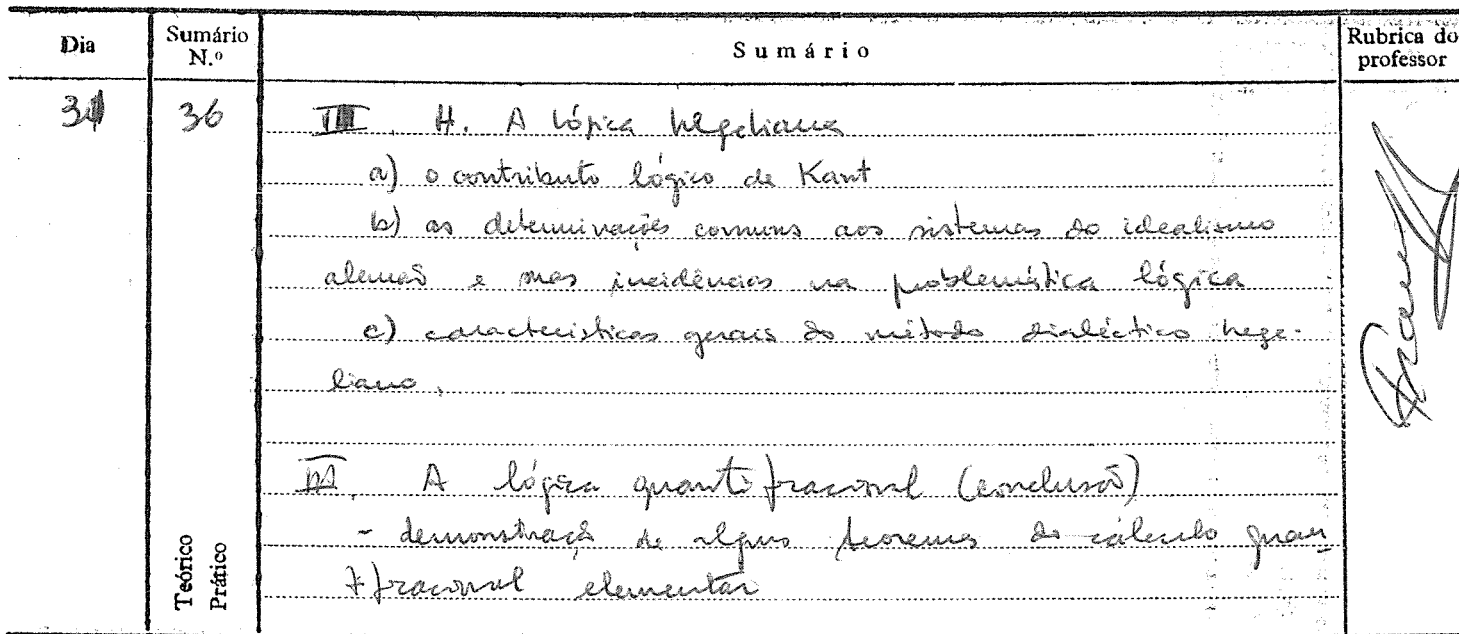 Dia
Sumário N.º
Sumário
Rubrica do professor
31
36
III. H. A lógica hegeliana
a) o contributo lógico de Kant
b) as determinações comuns aos sistemas do idealismo
alemão e suas incidências na problemática lógica
c) características gerais do método dialéctico hege-
liano.
A lógica quantificacional (conclusão)
- demonstração de alguns teoremas do cálculo quan
tificacional elementar
Teórico
Prático